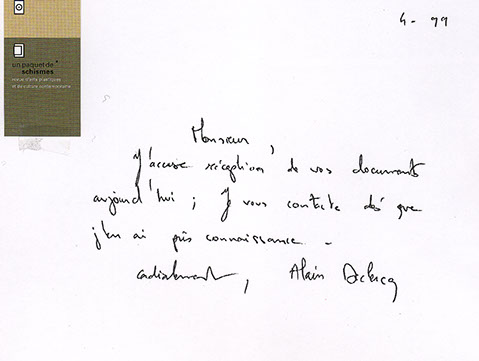 4 - 99
un paquet de
schismes
revue d'arts plastiques
et de culture contemporaine
Monsieur,
J'accuse réception de vos documents
aujourd'hui ; Je vous contacte dès que
j'en ai pris connaissance -
cordialement, Alain Declercq